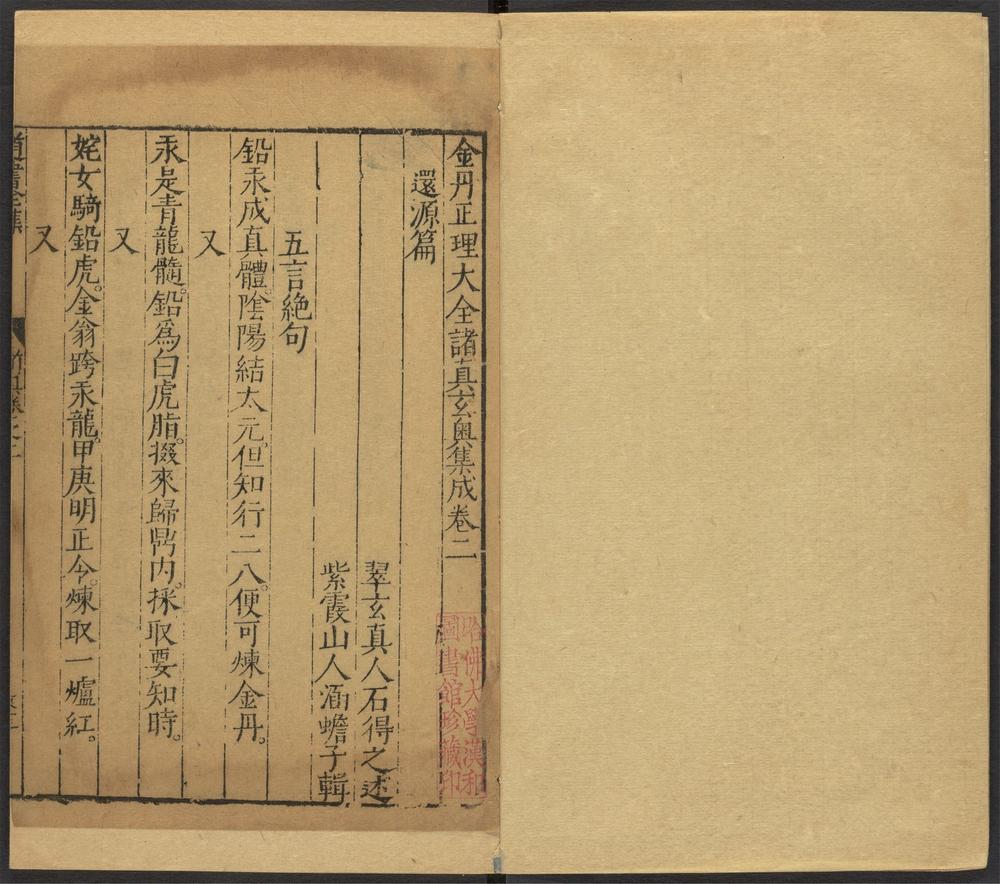 金丹正理大全諸真玄奧集成卷二
還源篇
翠玄真人石得之述
紫霞山人涵蟾子輯
五言絕句
鉛汞成真體陰陽結太元。但知行二八。便可煉金丹。
又
汞是青龍髓。鉛為白虎脂。掇來歸鼎內。採取要知時。
又
姹女騎鉛虎。金翁跨汞龍。甲庚明正令。煉取一爐紅。
又
道書全集
哈佛大學漢和
圖書館珍藏印